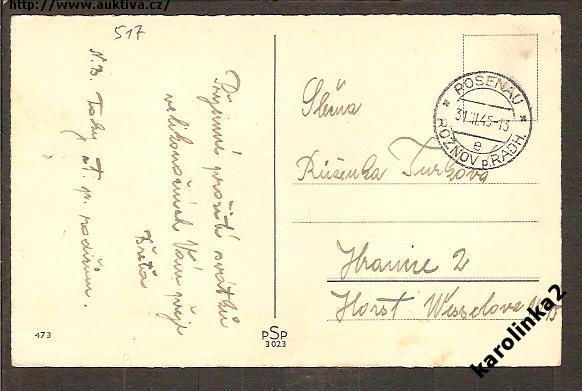 http://www.auktiva.cz/
517
Příjemné prožití svátků
velikonočních Vám přeje
Břeťa
N.B. Taky T. p. rodičům.
Slečna
Růženka Turkova
Hranice 2
Horst Wesselova
ROSENAU
31.III.45-13
e
ROŽNOV p. RADH.
473
PSP
3023
karolinka2